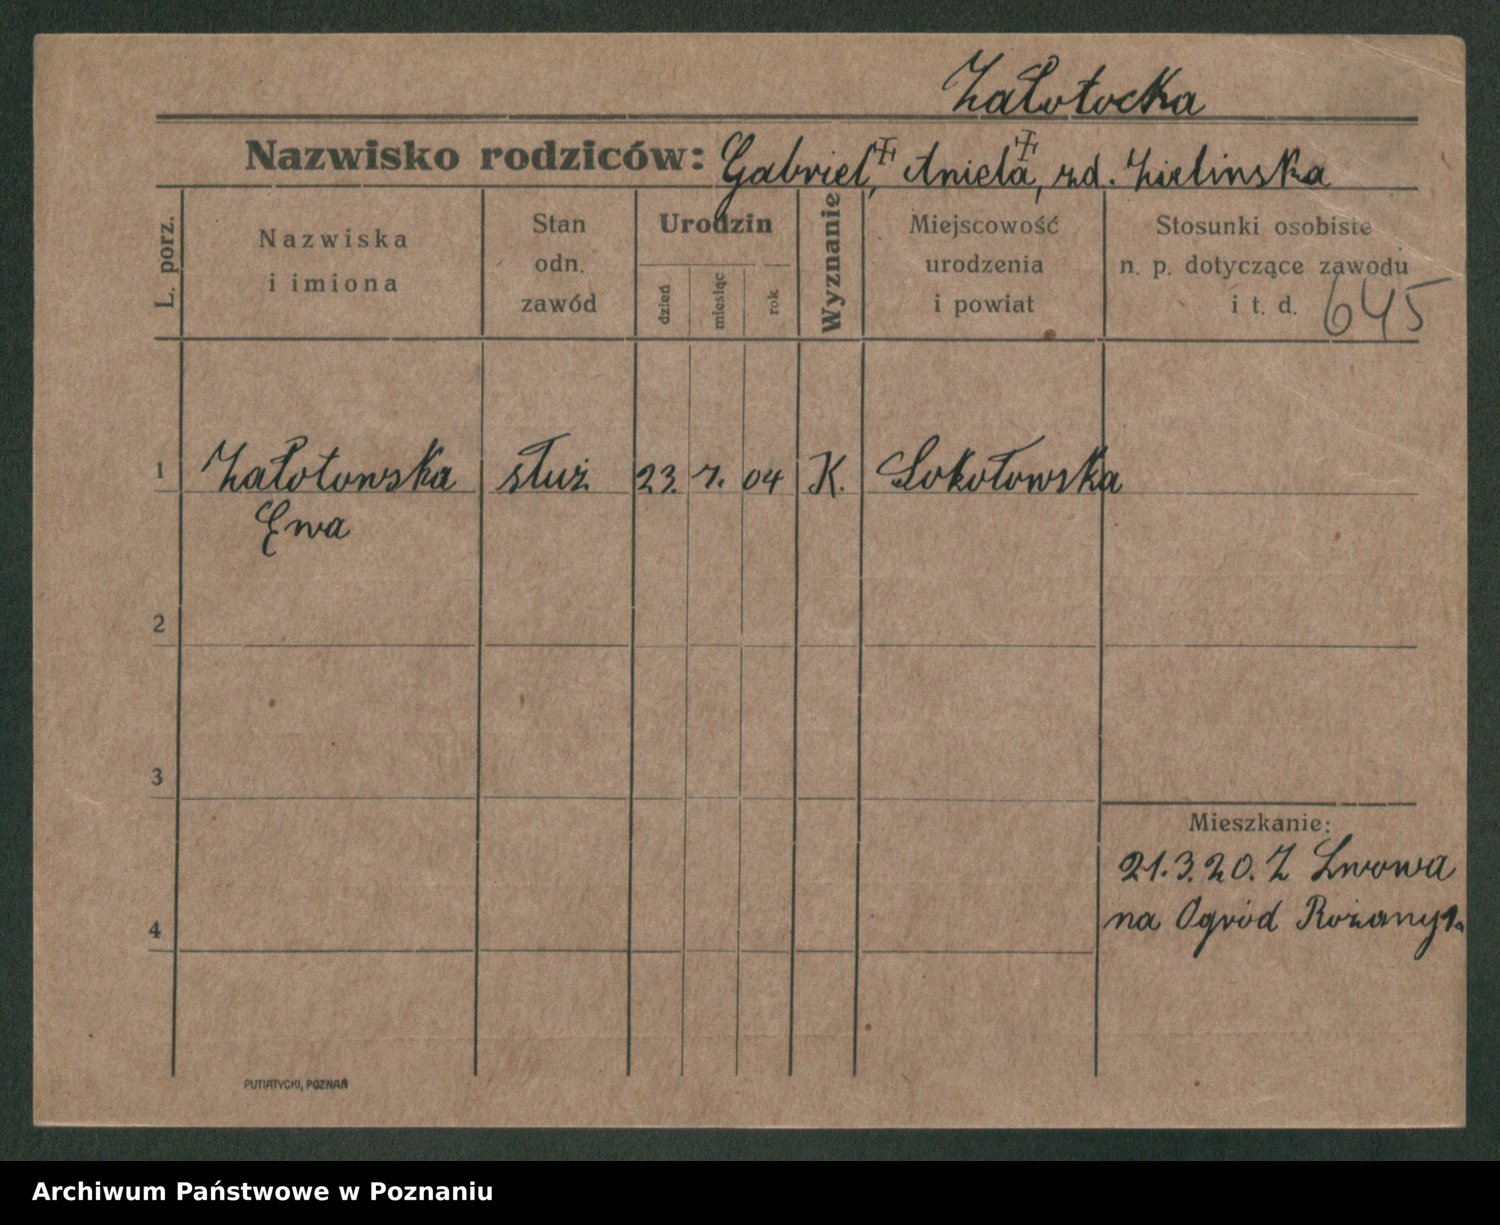 Załotocka
Nazwisko rodziców: Gabriel, Aniela, rd. Zielinska
L. porz.
Nazwiska
i imiona
Stan
odn.
zawód
Urodzin
dzień
miesiąc
rok
Wyznanie
Miejscowość
urodzenia
i powiat
Stosunki osobiste
n. p. dotyczące zawodu
i t. d. 645
1 Załotowska służ 23. 7. 04 K. Sokołowska
Ewa
2
3
4
Mieszkanie:
21.3.20. Z Lwowa
na Ogród Rożany 1.
PUTIATYCKI, POZNAŃ
Archiwum Państwowe w Poznaniu